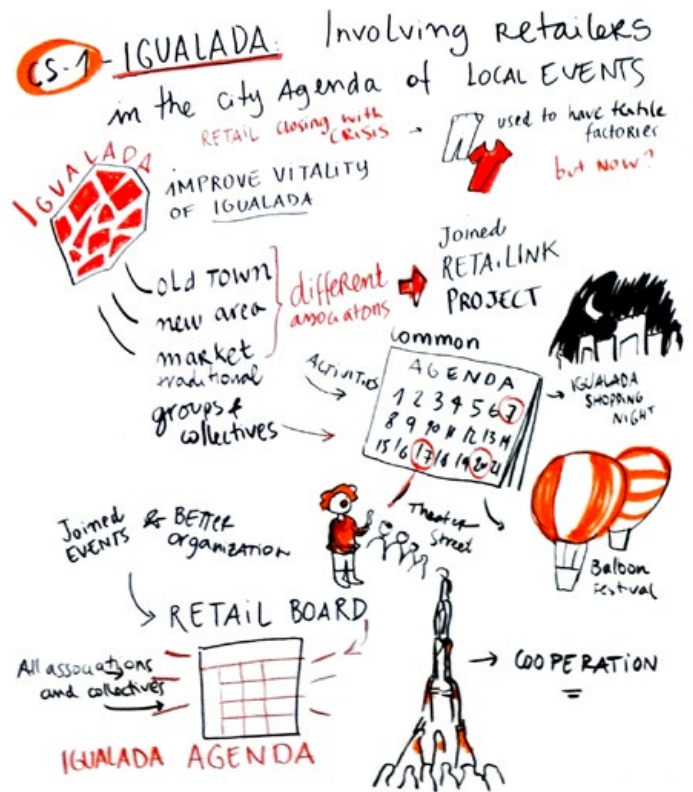 CS-1 - IGUALADA: Involving retailers
in the city Agenda of LOCAL EVENTS
RETAIL closing with
CRISIS
used to have textile
factories
but NOW?
IGUALADA
IMPROVE VITALITY
OF IGUALADA
OLD TOWN
new area
market
traditional
groups &
collectives
different
associatons
Joined
RETAILINK
PROJECT
common
ACTIVITIES
AGENDA
1 2 3 4 5 6 7
8 9 10 11 12 13 14
15 16 17 18 19 20 21
IGUALADA
SHOPPING
NIGHT
Theater
Street
Balloon
Festival
Joined & BETTER
EVENTS organization
RETAIL BOARD
All associations
and collectives
IGUALADA AGENDA
COOPERATION